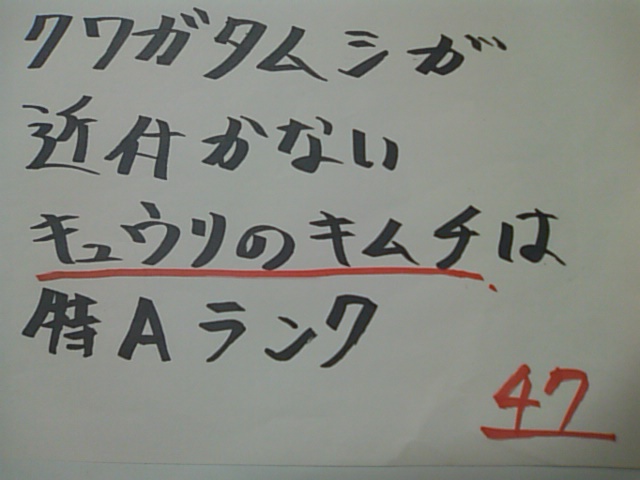 クワガタムシが
近付かない
キュウリのキムチは
特Aランク
47